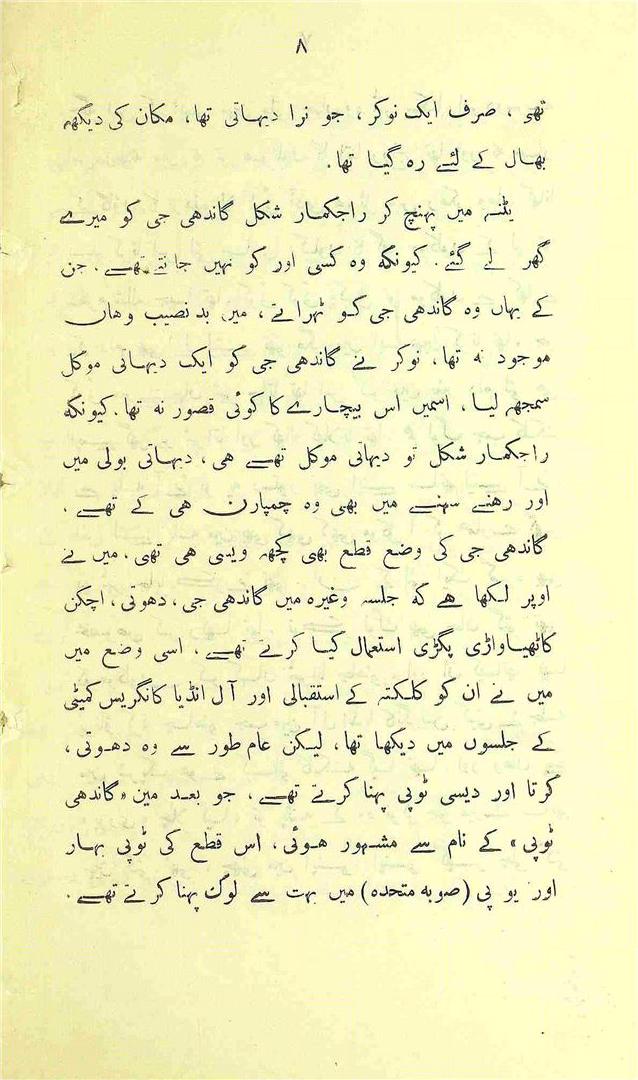 ۸
تھی ، صرف ایک نوکر ، جو نرا دیہاتی تھا، مکان کی دیکھہ
بھال کے لئے رہ گیا تھا.
پٹنہ میں پہنچ کر راجکمار شکل گاندھی جی کو میرے
گھر لے گئے. کیونکہ وہ کسی اور کو نہیں جانتے تھے. جن
کے یہاں وہ گاندھی جی کو ٹہراتے ، میں بد نصیب وھاں
موجود نہ تھا، نوکر نے گاندھی جی کو ایک دیہاتی موکل
سمجھہ لیا ، اسمیں اس بیچارے کا کوئی قصور نہ تھا. کیونکہ
راجکمار شکل تو دیہاتی موکل تھے ھی ، دیہاتی بولی میں
اور رھنے سہنے میں بھی وہ چمپارن ھی کے تھے .
گاندھی جی کی وضع قطع بھی کچھہ ویسی ھی تھی. میں نے
اوپر لکھا ھے کہ جلسہ وغیرہ میں گاندھی جی ، دھوتی ، اچکن
کاٹھیاواڑی پگڑی استعمال کیا کرتے تھے ، اسی وضع میں
میں نے ان کو کلکتہ کے استقبالی اور آل انڈیا کانگریس کمیٹی
کے جلسوں میں دیکھا تھا، لیکن عام طور سے وہ دھوتی ،
کرتا اور دیسی ٹوپی پہنا کرتے تھے ، جو بعد مین «گاندھی
ٹوپی» کے نام سے مشہور ھوئی ، اس قطع کی ٹوپی بہار
اور یو پی (صوبہ متحدہ) میں بہت سے لوگ پہنا کرتے تھے .